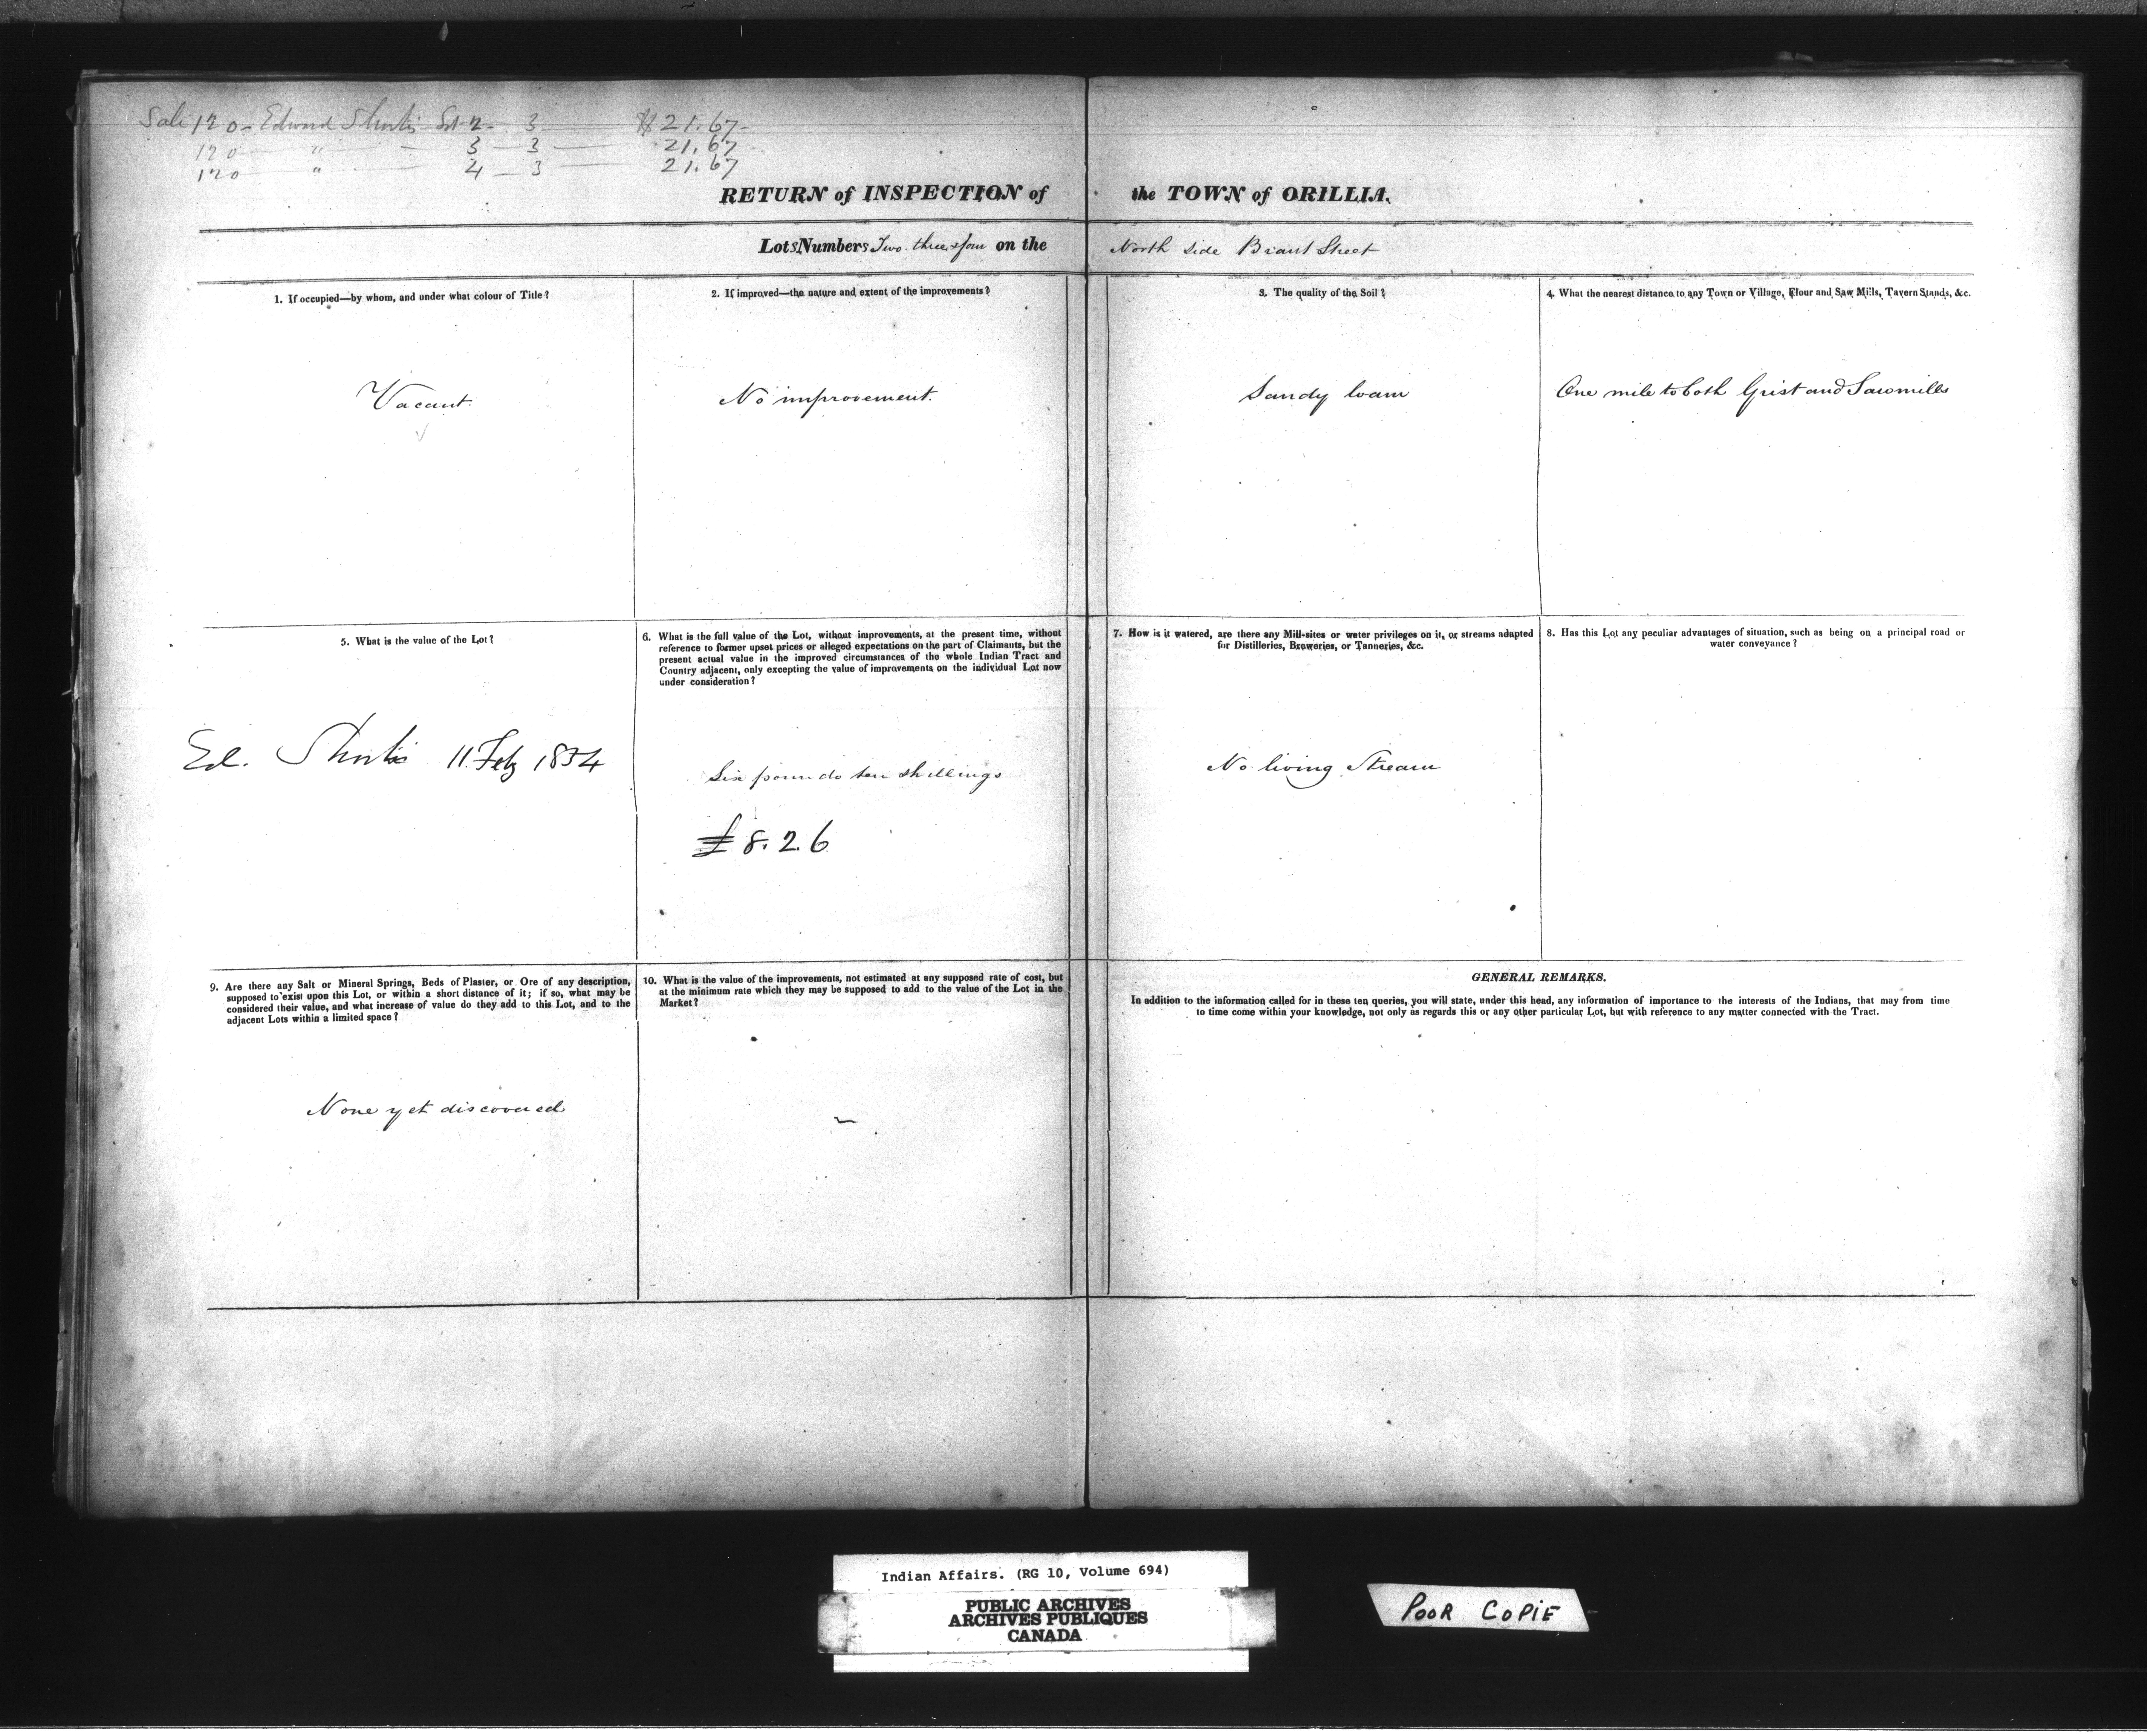 Sale 120 - Edward Shortis Lot 2 - 3 — $21.67
120 — " — 3 — 3 — 21.67
120 — " — 4 — 3 — 21.67
RETURN of INSPECTION of the TOWN of ORILLIA.
Lots Numbers Two. three & four on the North side Brant Street
1. If occupied—by whom, and under what colour of Title?
Vacant.
2. If improved—the nature and extent of the improvements?
No improvement.
3. The quality of the Soil?
Sandy loam
4. What the nearest distance to any Town or Village, Flour and Saw Mills, Tavern Stands, &c.
One mile to both Grist and Sawmills
5. What is the value of the Lot?
Ed. Shortis 11 Feby 1854
6. What is the full value of the Lot, without improvements, at the present time, without
reference to former upset prices or alleged expectations on the part of Claimants, but the
present actual value in the improved circumstances of the whole Indian Tract and
Country adjacent, only excepting the value of improvements on the individual Lot now
under consideration?
Six pounds ten shillings
£8.2.6
7. How is it watered, are there any Mill-sites or water privileges on it, or streams adapted
for Distilleries, Breweries, or Tanneries, &c.
No living Stream
8. Has this Lot any peculiar advantages of situation, such as being on a principal road or
water conveyance?
9. Are there any Salt or Mineral Springs, Beds of Plaster, or Ore of any description,
supposed to exist upon this Lot, or within a short distance of it; if so, what may be
considered their value, and what increase of value do they add to this Lot, and to the
adjacent Lots within a limited space?
None yet discovered
10. What is the value of the improvements, not estimated at any supposed rate of cost, but
at the minimum rate which they may be supposed to add to the value of the Lot in the
Market?
GENERAL REMARKS.
In addition to the information called for in these ten queries, you will state, under this head, any information of importance to the interests of the Indians, that may from time
to time come within your knowledge, not only as regards this or any other particular Lot, but with reference to any matter connected with the Tract.
Indian Affairs. (RG 10, Volume 694)
PUBLIC ARCHIVES
ARCHIVES PUBLIQUES
CANADA
POOR COPIE